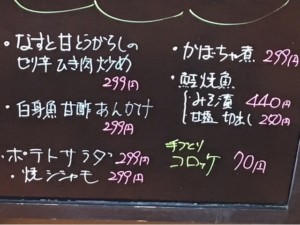 ・なすと甘とうがらしの
ピリ辛ひき肉炒め
299円
・白身魚甘酢あんかけ
299円
・ポテトサラダ 299円
・焼シシャモ 299円
・かぼちゃ煮 299円
・鮭焼魚
みそ漬 440円
甘塩 切出し 250円
手づくり
コロッケ 70円